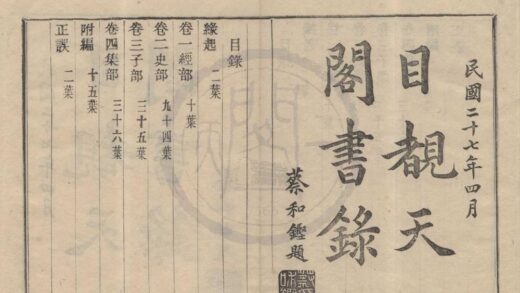 民國二十七年四月
目覩天
閣書錄
蔡和鏗題
目錄
緣起 二葉
卷一經部 十葉
卷二史部 九十四葉
卷三子部 三十五葉
卷四集部 三十六葉
附編 十五葉
正誤 二葉